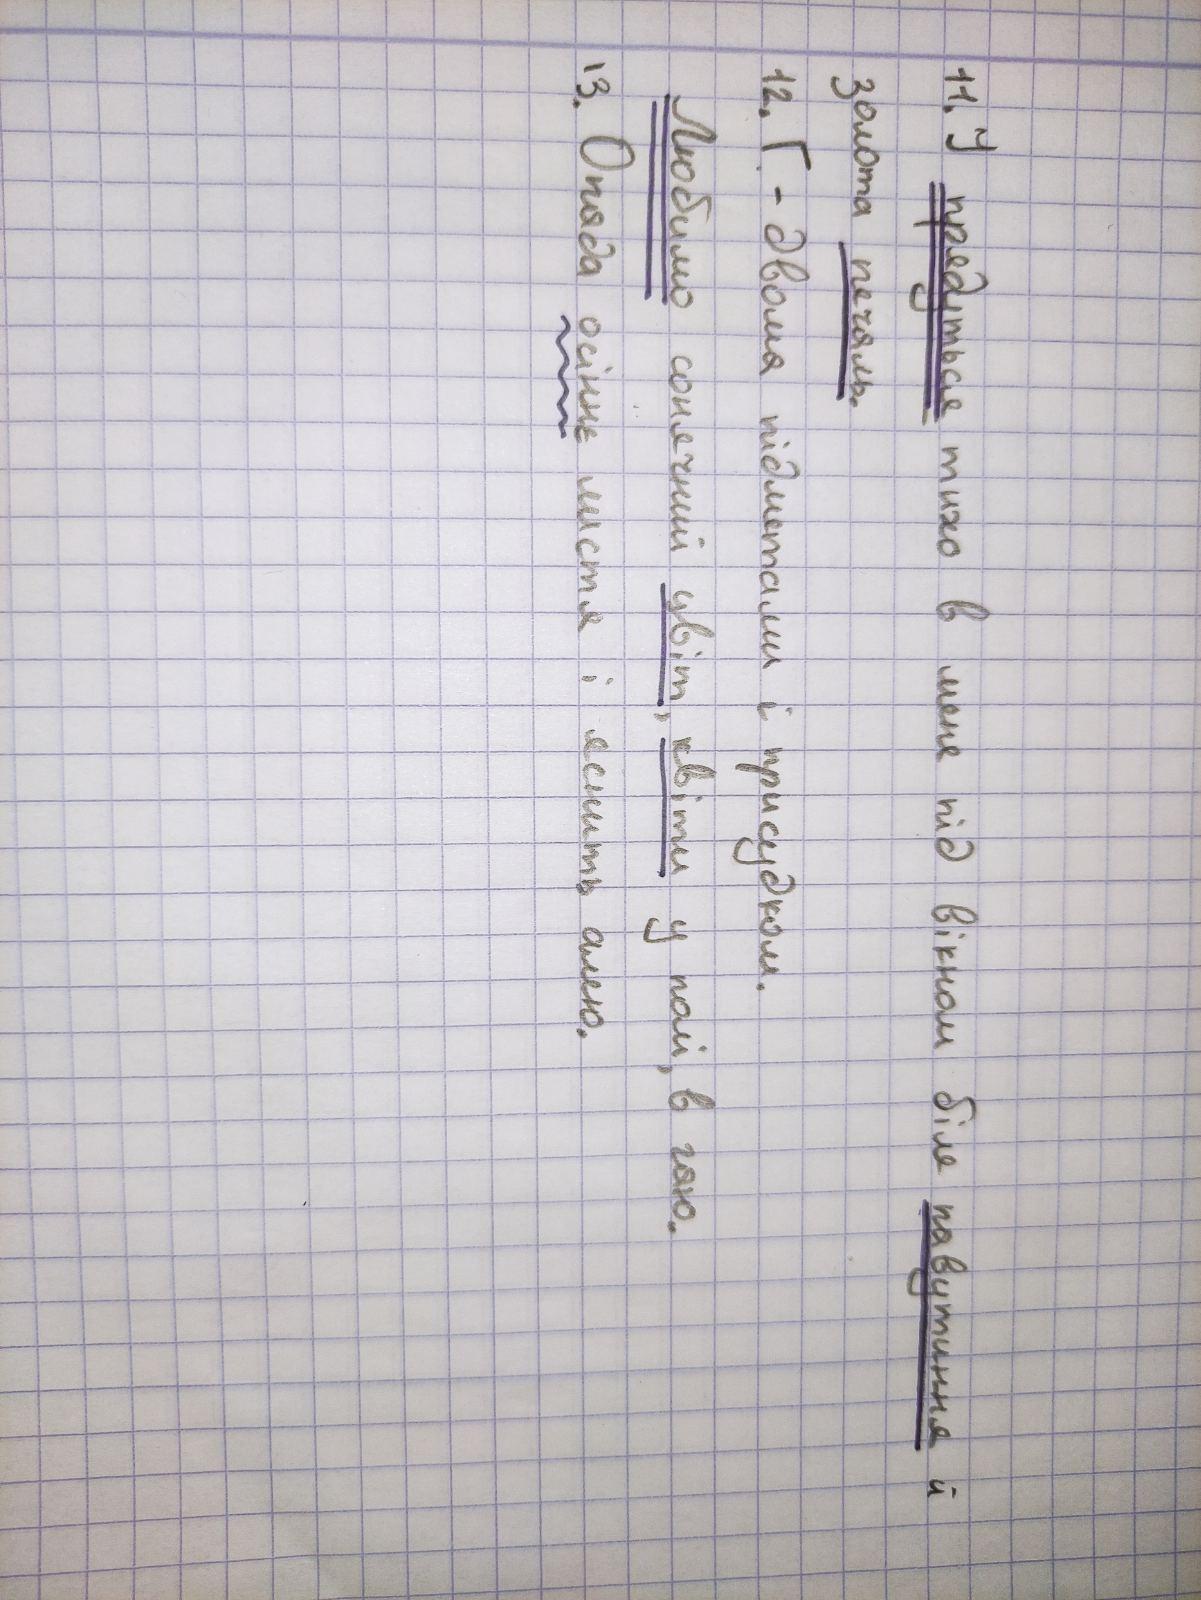 11. У прядуться тихо в мене під вікном біля павутиння й
золота печаль.
12. Г - двома підметами і присудком.
Любимо сонячний цвіт, квіти у полі, в гаю.
13. Опада осіннє листя і яснить алею.